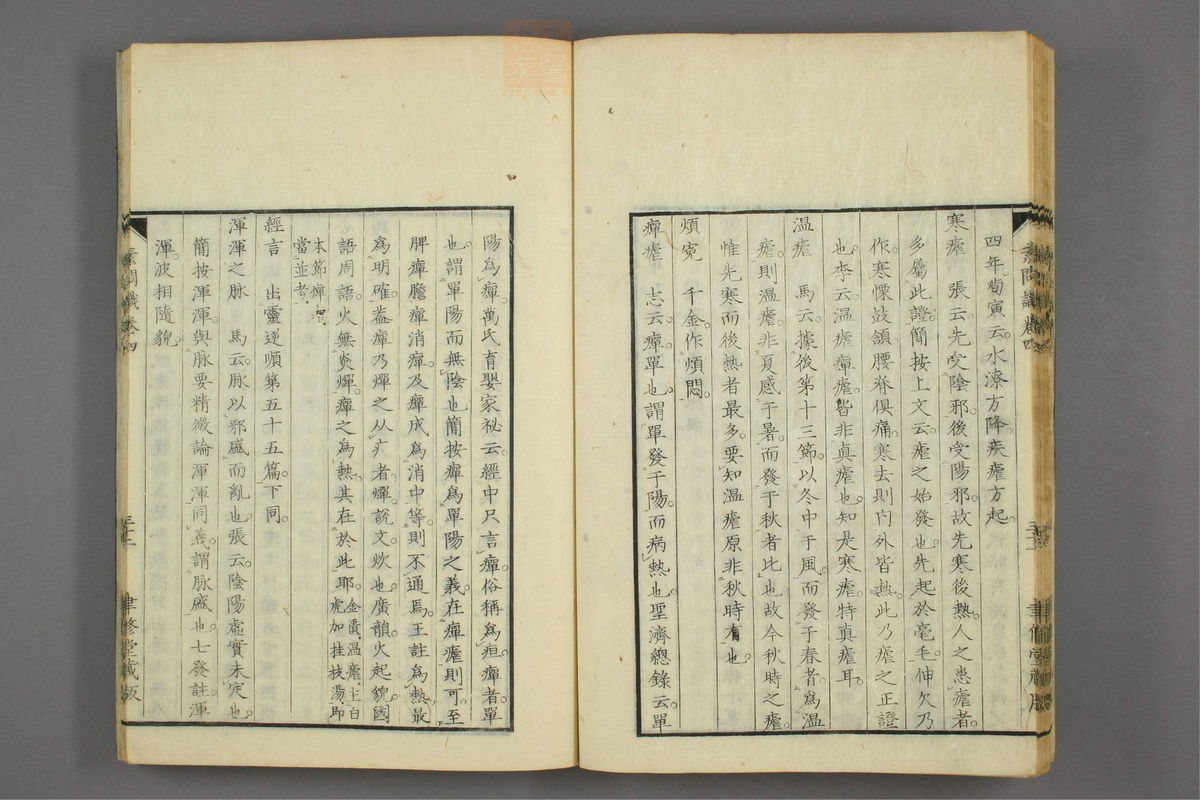 四年荀寅云水潦方降疾瘧方起
寒瘧　張云先受陰邪後受陽邪故先寒後熱人之患瘧者
多屬此證簡按上文云瘧之始發也先起於毫毛伸欠乃
作寒慄鼓頷腰脊俱痛寒去則內外皆熱此乃瘧之正證
也李云溫瘧癉瘧皆非真瘧也知是寒瘧特真瘧耳
溫瘧　馬云據後第十三節以冬中于風而發于春者為溫
瘧則溫瘧非夏感于暑而發于秋者比也故今秋時之瘧
惟先寒而後熱者最多要知溫瘧原非秋時有也
煩冤　千金作煩悶
癉瘧　志云癉單也謂單發于陽而病熱也聖濟總錄云單
陽為癉萬氏育嬰家祕云經中只言癉俗稱為疸癉者單
也謂單陽而無陰也簡按癉為單陽之義在癉瘧則可至
脾癉膽癉消癉及癉成為消中等則不通焉王註為熱最
為明確蓋癉乃燀之从疒者燀說文炊也廣韻火起貌國
語周語火無炎燀癉之為熱其在於此耶金匱溫瘧主白
虎加桂枝湯即
本節癉瘧
當並考
經言　出靈逆順第五十五篇下同
渾渾之脉　馬云脉以邪盛而亂也張云陰陽虛實未定也
簡按渾渾與脉要精微論渾渾同義謂脉盛也七發註渾
渾波相隨貌
素問識卷四
聿修堂藏板
素問識卷四
聿修堂藏版